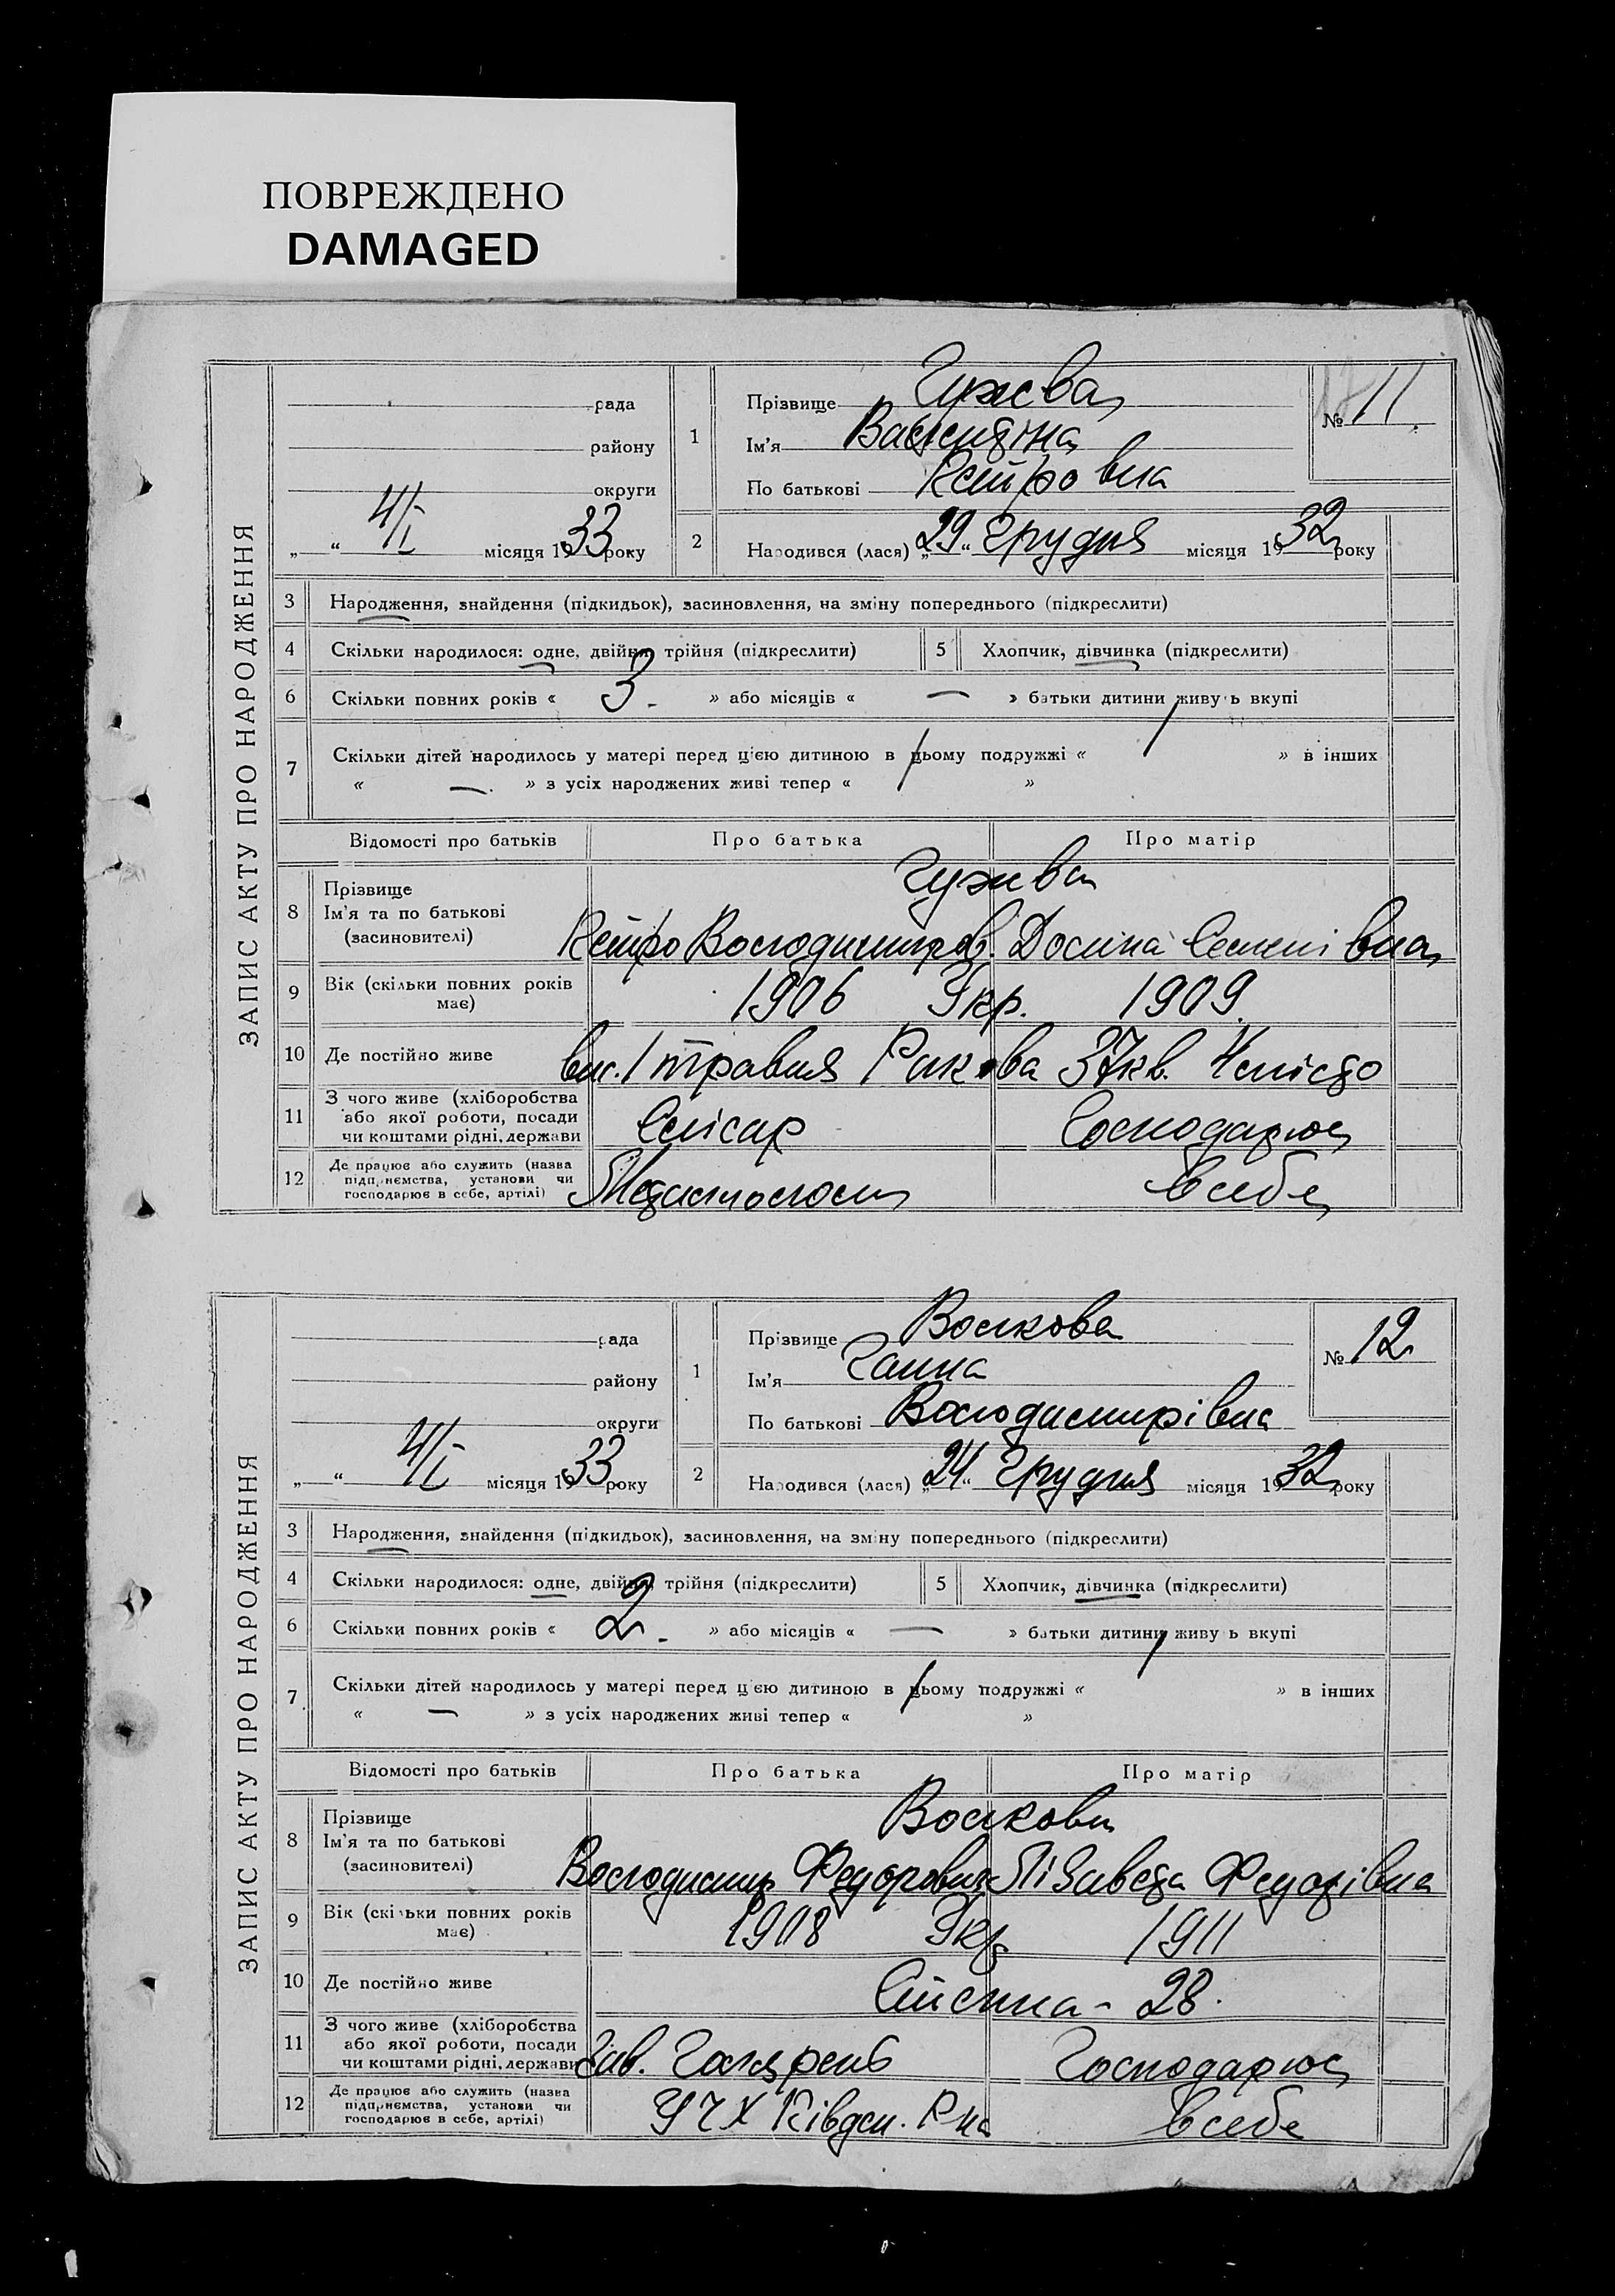 ПОВРЕЖДЕНО
DAMAGED
ЗАПИС АКТУ ПРО НАРОДЖЕННЯ
рада
району
округи
„ “ 4/I місяця 1933 року
1
Прізвище Гужва
Ім'я Валентина
По батькові Петровна
№ 11
2
Народився (лася) „29“ Грудня місяця 1932 року
3 Народження, знайдення (підкидьок), засиновлення, на зміну попереднього (підкреслити)
4 Скільки народилося: одне, двійня, трійня (підкреслити) 5 Хлопчик, дівчинка (підкреслити)
6 Скільки повних років « 3 » або місяців « — » батьки дитини живуть вкупі
7 Скільки дітей народилось у матері перед цією дитиною в цьому подружжі « 1 » в інших
« — » з усіх народжених живі тепер « 1 »
Відомості про батьків Про батька Про матір
8 Прізвище Гужва
Ім'я та по батькові
(засиновителі) Петро Володимиров. Семенівна
9 Вік (скільки повних років має) 1906 Укр. 1909
10 Де постійно живе вис. 1 травня 37 кв.
11 З чого живе (хліборобства або якої роботи, посади чи коштами рідні, держави Слісар Господарює
12 Де працює або служить (назва підприємства, установи чи господарює в себе, артілі) в себе
ЗАПИС АКТУ ПРО НАРОДЖЕННЯ
рада
району
округи
„ “ 4/I місяця 1933 року
1
Прізвище Волкова
Ім'я Ганна
По батькові Володимирівна
№ 12
2
Народився (лася) „24“ Грудня місяця 1932 року
3 Народження, знайдення (підкидьок), засиновлення, на зміну попереднього (підкреслити)
4 Скільки народилося: одне, двійня, трійня (підкреслити) 5 Хлопчик, дівчинка (підкреслити)
6 Скільки повних років « 2 » або місяців « — » батьки дитини живуть вкупі
7 Скільки дітей народилось у матері перед цією дитиною в цьому подружжі « 1 » в інших
« — » з усіх народжених живі тепер « 1 »
Відомості про батьків Про батька Про матір
8 Прізвище Волкови
Ім'я та по батькові
(засиновителі) Володимир Федорович Лізавета Федорівна
9 Вік (скільки повних років має) 1908 Укр 1911
10 Де постійно живе 28.
11 З чого живе (хліборобства або якої роботи, посади чи коштами рідні, держави Зав. Господарює
12 Де працює або служить (назва підприємства, установи чи господарює в себе, артілі) Півден. в себе